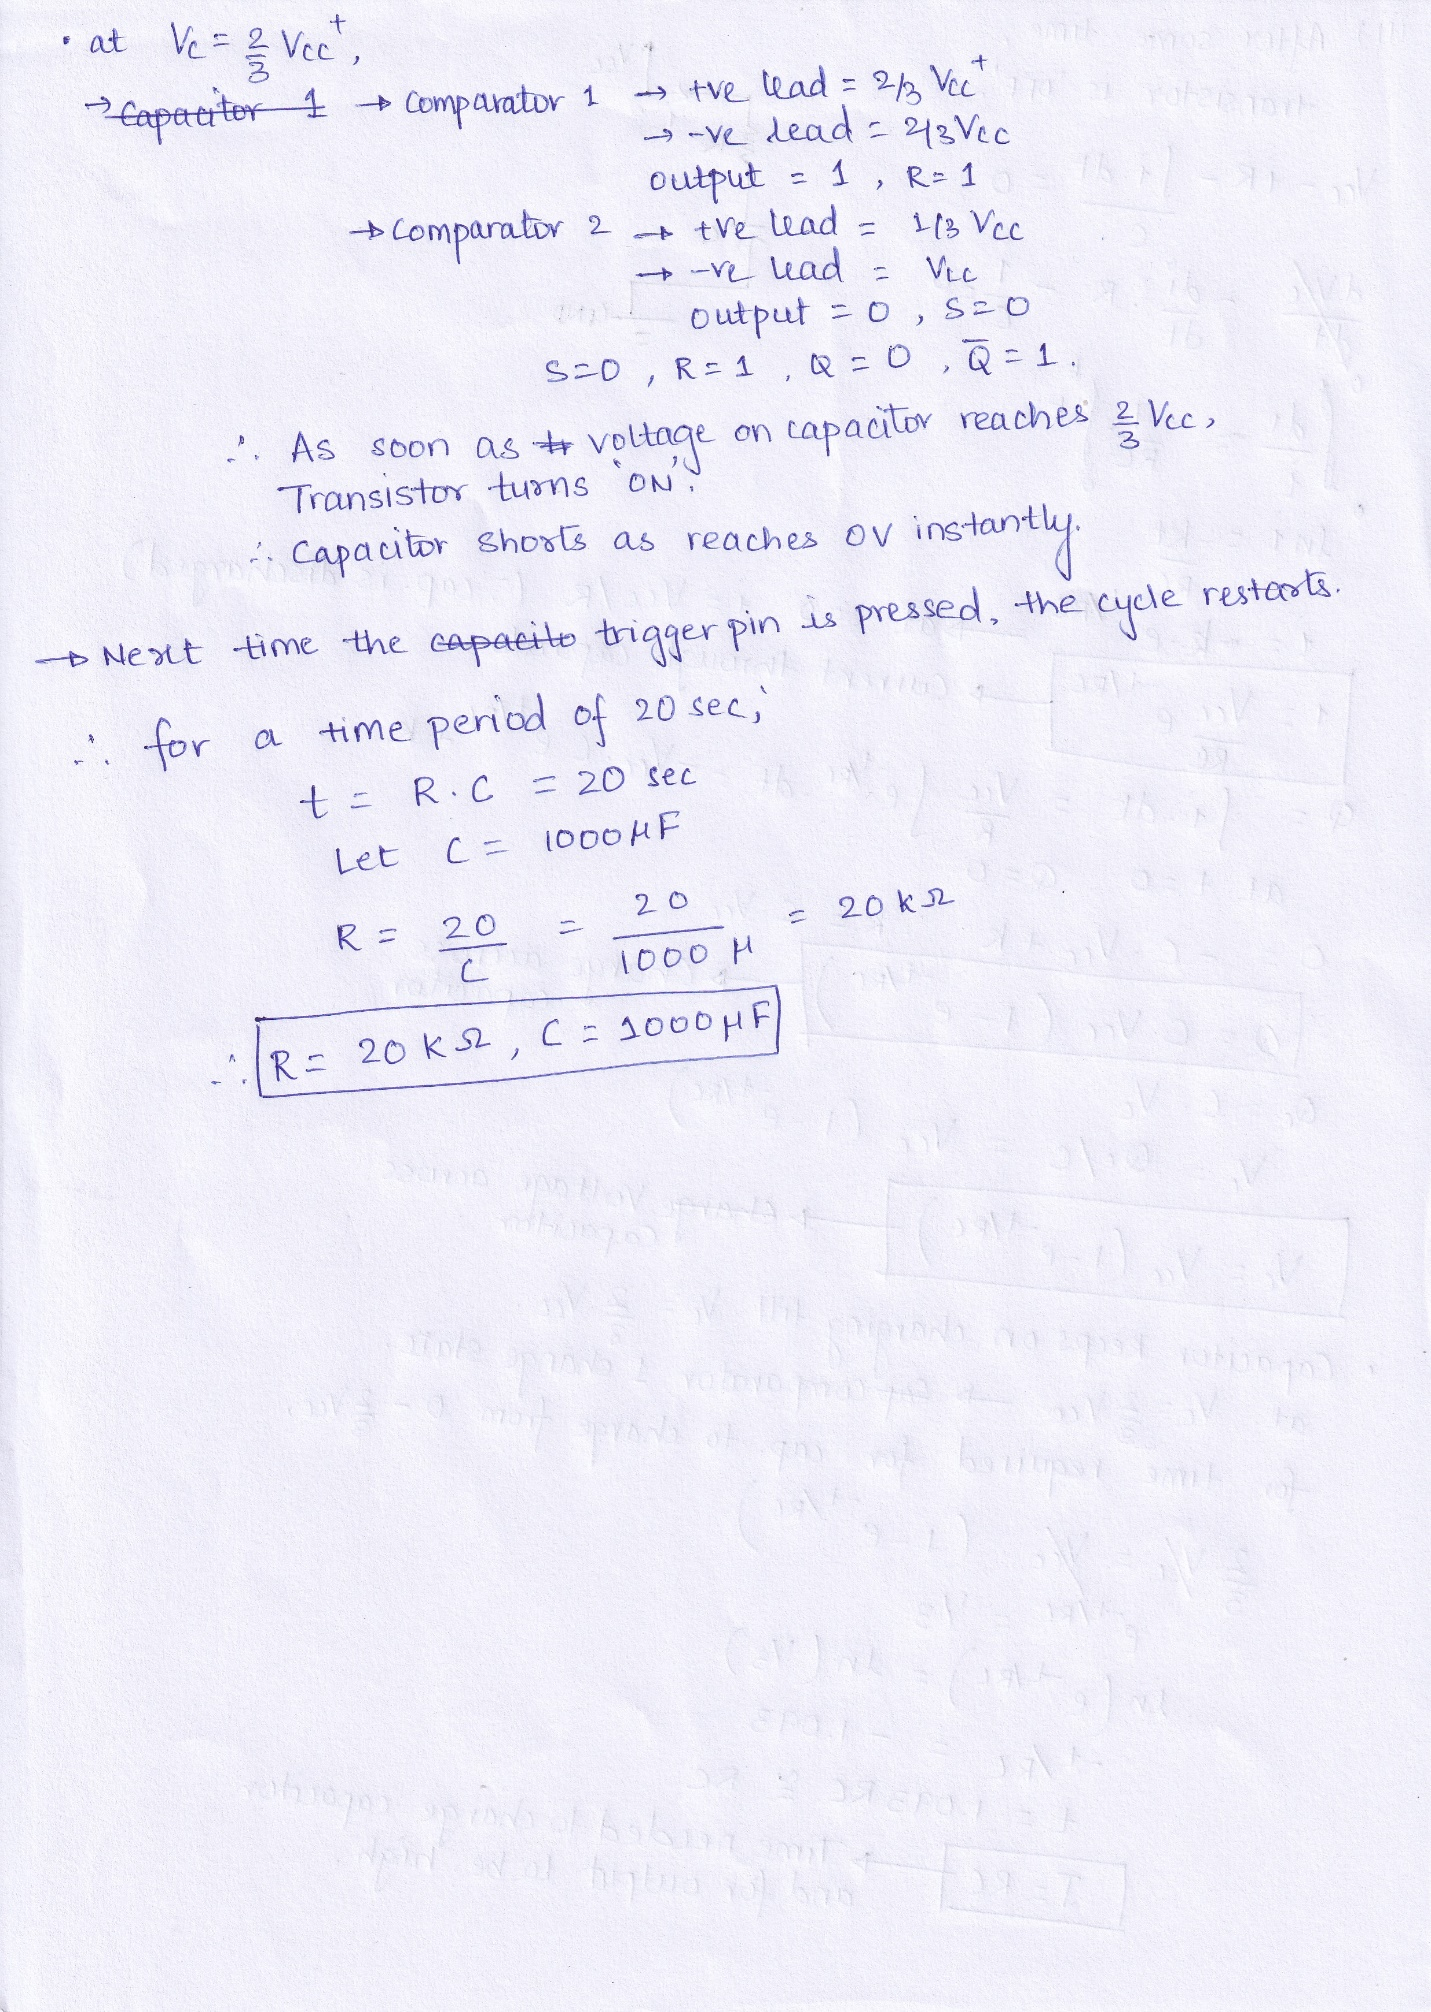 • at Vc = 2/3 Vcc⁺,
→ Capacitor 1 → Comparator 1 → +ve lead = 2/3 Vcc⁺
→ -ve lead = 2/3 Vcc
output = 1 , R = 1
→ Comparator 2 → +ve lead = 1/3 Vcc
→ -ve lead = Vcc
output = 0 , S = 0
S = 0 , R = 1 , Q = 0 , Q̅ = 1 .
∴ As soon as voltage on capacitor reaches 2/3 Vcc,
Transistor turns 'ON'.
∴ Capacitor shorts as reaches 0V instantly.
→ Next time the capacito trigger pin is pressed, the cycle restarts.
∴ for a time period of 20 sec;
t = R.C = 20 sec
Let C = 1000 μF
R = 20/C = 20/1000 μ = 20 kΩ
∴ R = 20 kΩ , C = 1000 μF